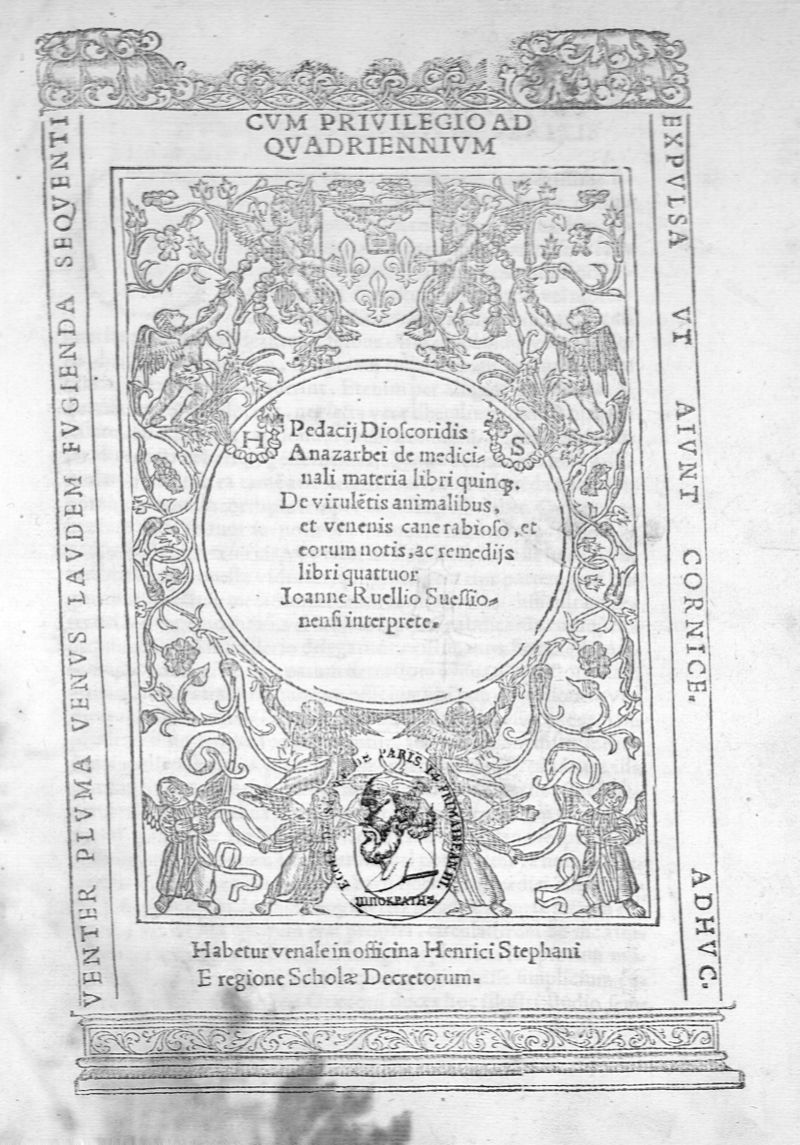 CVM PRIVILEGIO AD
QVADRIENNIVM
VENTER PLVMA VENVS LAVDEM FVGIENDA SEQVENTI
EXPVLSA VT AIVNT CORNICE. ADHVC.
H
S
Pedacij Dioſcoridis
Anazarbei de medici-
nali materia libri quinqꝫ.
De virulẽtis animalibus,
et venenis cane rabioſo, et
eorum notis, ac remedijs
libri quattuor
Ioanne Ruellio Sueſſio-
nenſi interprete.
DE PARIS
ΙΠΠΟΚΡΑΤΗΣ
Habetur venale in officina Henrici Stephani
E regione Scholæ Decretorum.